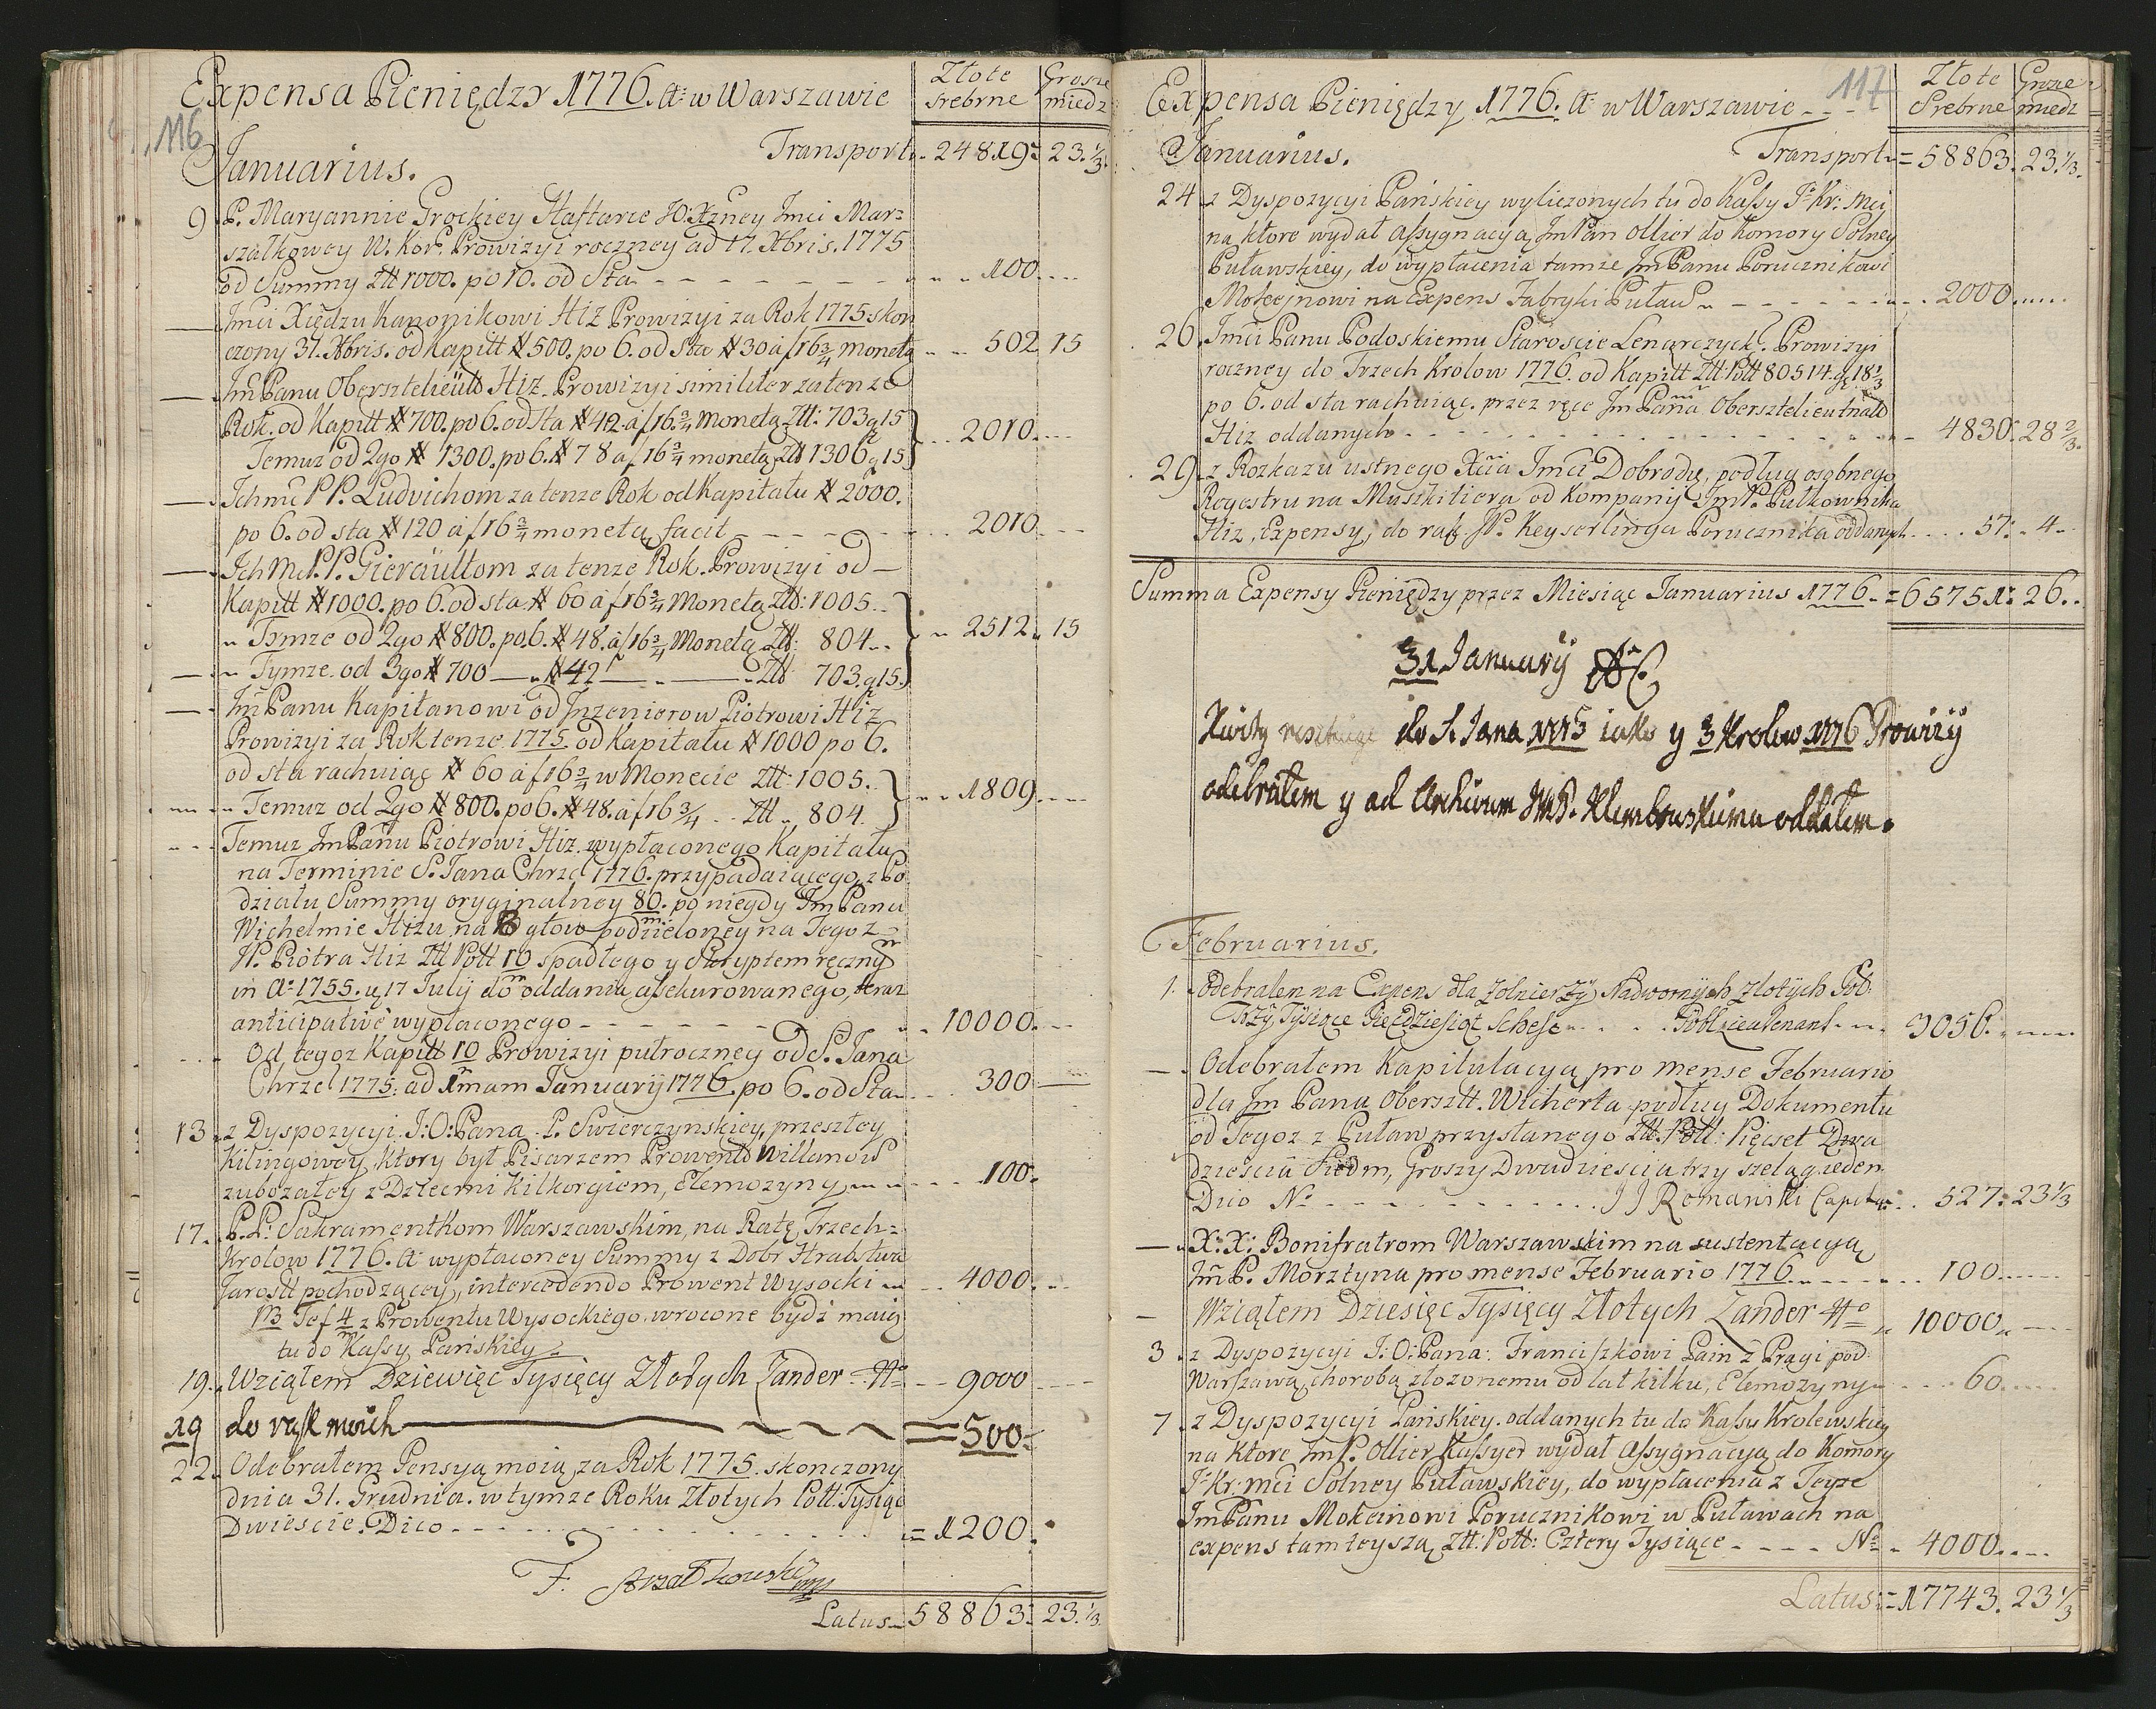 Expensa Pieniędzy 1776. A: w Warszawie
Złote Srebrne
Grosze miedz
116
Januarius.
Transport 24819 23.⅓.
9 P. Maryannie Grockiey Haftarce JO: Xżney Jmci Mar=
szałkowey W. Kor. Prowizyi roczney ad 17. Xbris. 1775
od Summy Ztt 1000. po 10. od Sta 100.
Jmci Xiędzu Kanonikowi Hiż Prowizyi za Rok 1775. skoń
czony 31. Xbris. od Kapitt # 500. po 6. od sta # 30 a f 16¾ monetą 502 15
Jm Panu Obersztelieüt Hiż. Prowizyi similiter za tenże
Rok. od Kapitt # 700. po 6. od sta # 42 a f 16.¾ Monetą Ztt: 703 g 15
Temuż od 2go # 1300. po 6. # 78 a f 16¾ monetą Ztt 1306 g 15
2010.
Ichmc PP. Ludvichom za tenże Rok od Kapitału # 2000.
po 6. od sta # 120 a f 16¾ monetą facit 2010
Ich Mc P.P. Gieräultom za tenże Rok. Prowizyi od
Kapitt # 1000. po 6. od sta # 60 a f 16¾ Monetą Ztt: 1005.
Tymże od 2go # 800. po 6. # 48. a f 16¾ Monetą Ztt: 804
Tymże. od 3go # 700 # 42 Ztt 703. g 15.
2512. 15
Jm Panu Kapitanowi od Jnżenierow Piotrowi Hiż
Prowizyi za Rok tenże 1775. od Kapitału # 1000 po 6.
od sta rachuiąc # 60 a f 16¾ w Monecie Ztt: 1005.
Temuż od 2go # 800. po 6. # 48. a f 16 ¾ Ztt 804.
1809
Temuż Jm Panu Piotrowi Hiż. wypłaconego Kapitału
na Terminie S. Jana Chrzci 1776. przypadaiącego, z Po
działu Summy oryginalney 80. po niegdy Jm Panu
Wichelmie Hiżu, na 8 głow podzieloney na Tegoż
JP. Piotra Hiż Ztt Pott 10 spadłego y Skryptem ręcznym
in A: 1755. d. 17 Julij do oddania asekurowanego, teraz
anticipativè wypłaconego 10000.
Od tegoż Kapitt 10 Prowizyi pułroczney od S. Jana
Chrzci 1775. ad 1mam Januarij 1776. po 6. od Sta 300
13. z Dyspozycyi J:O: Pana P. Swierczynskiey, przeszłey
Kilingowey, ktory był Pisarzem Prowent Willanow
zubożałey z Dziećmi Kilkorgiem, Elemozyny 100.
17. P.P. Sakramentkom Warszawskim, na Ratę Trzech=
Krolow 1776. A: wypłaconey Summy z Dobr Hrabstwa
Jarostt pochodzącey, intercedendo Prowent Wysocki 4000.
NB Te f 4 z Prowentu Wysockiego. wrocone bydź maią
tu do Kassy Pańskiey.
19. Wziąłem Dziewięc Tysięcy Złotych Zander 9000
19 do rąk moich = 500
22. Odebrałem Pensyą moią, za Rok 1775. skonczony
dnia 31. Grudnia. w tymże Roku Złotych Pott: Tysiąc
Dwieście. Dico = 1200.
F.
Latus 58863. 23.⅓.
117
Expensa Pieniędzy 1776. A: w Warszawie
Złote Srebrne
Grosze miedz
Januarius.
Transport = 58863. 23.⅓.
24 z Dyspozycyi Pańskiey wyliczonych tu do Kassy J. Kr: Mci
na ktore wydał assygnacyą Jm Pan Ollier do Komory Solney
Puławskiey, do wypłacenia tamże Jm Panu Porucznikowi
Mokcinowi na Expens Fabryki Puław 2000
26. Jmci Panu Podoskiemu Staroscie Lenarczyck. Prowizyi
roczney do Trzech Krolow 1776. od Kapitt Ztt Pott 80514. g. 18⅓
po 6. od sta rachuiąc. przez ręce Jm Pana Oberszteliutnant
Hiż oddanych 4830. 28 ⅔.
29. z Rozkazu ustnego Xcia Jmci Dobrodz, podług osobnego
Regestru na Muszkitiera od Kompanij Jm P. Pułkownika
Hiż, Expensy, do rąk JP. Keyserlinga Porucznika oddanych 57. 4
Summa Expensy Pieniędzy przez Miesiąc Januarius 1776. = 65751. 26.
31 Januarij
Kwity do S. Jana 1775 iako y 3 Krolow 1776 Prowizij
odebrałem y ad Archivum JMP. Klembowskiemu oddałem.
Februarius.
1. Odebrałem na Expens dla Zołnierzÿ Nadwornÿch Złotÿch Pol:
Trzÿ Tÿsiące Piędziesiąt Schesc 3056.
Odebrałem Kapitulacyą pro mense Februario
dla Jm Pana Obersztt. Wicherta podług Dokumentu
od Tegoż z Puław przysłanego Ztt. Pott: Pięcset Dwa
dziescia Siedm, Groszy Dwadziescia trzy szeląg ieden
Dico No JJ Romanski Capita 527. 23⅓
X: X: Bonifratrom Warszawskim na sustentacyą
Jm P. Morsztyna pro mense Februario 1776. 100
Wziąłem Dziesięc Tysięcy Złotych Zander 10000
3. z Dyspozycyi J: O: Pana: Franciszkowi Pain z Pragi pod
Warszawą chorobą złożonemu od lat kilku, Elemozyny 60
7. z Dyspozycyi Pańskiey. oddanych tu do Kassy Krolewskiey
na ktore Jm P. Ollier Kassyer wydał Assygnacyą do Komory
J. Kr: mci Solney Puławskiey, do wypłacenia z Teyże
Jm Panu Mokcinowi Porucznikowi w Puławach na
expens tamteyszą Ztt: Pott: Cztery Tysiące No 4000
Latus = 17743. 23⅓